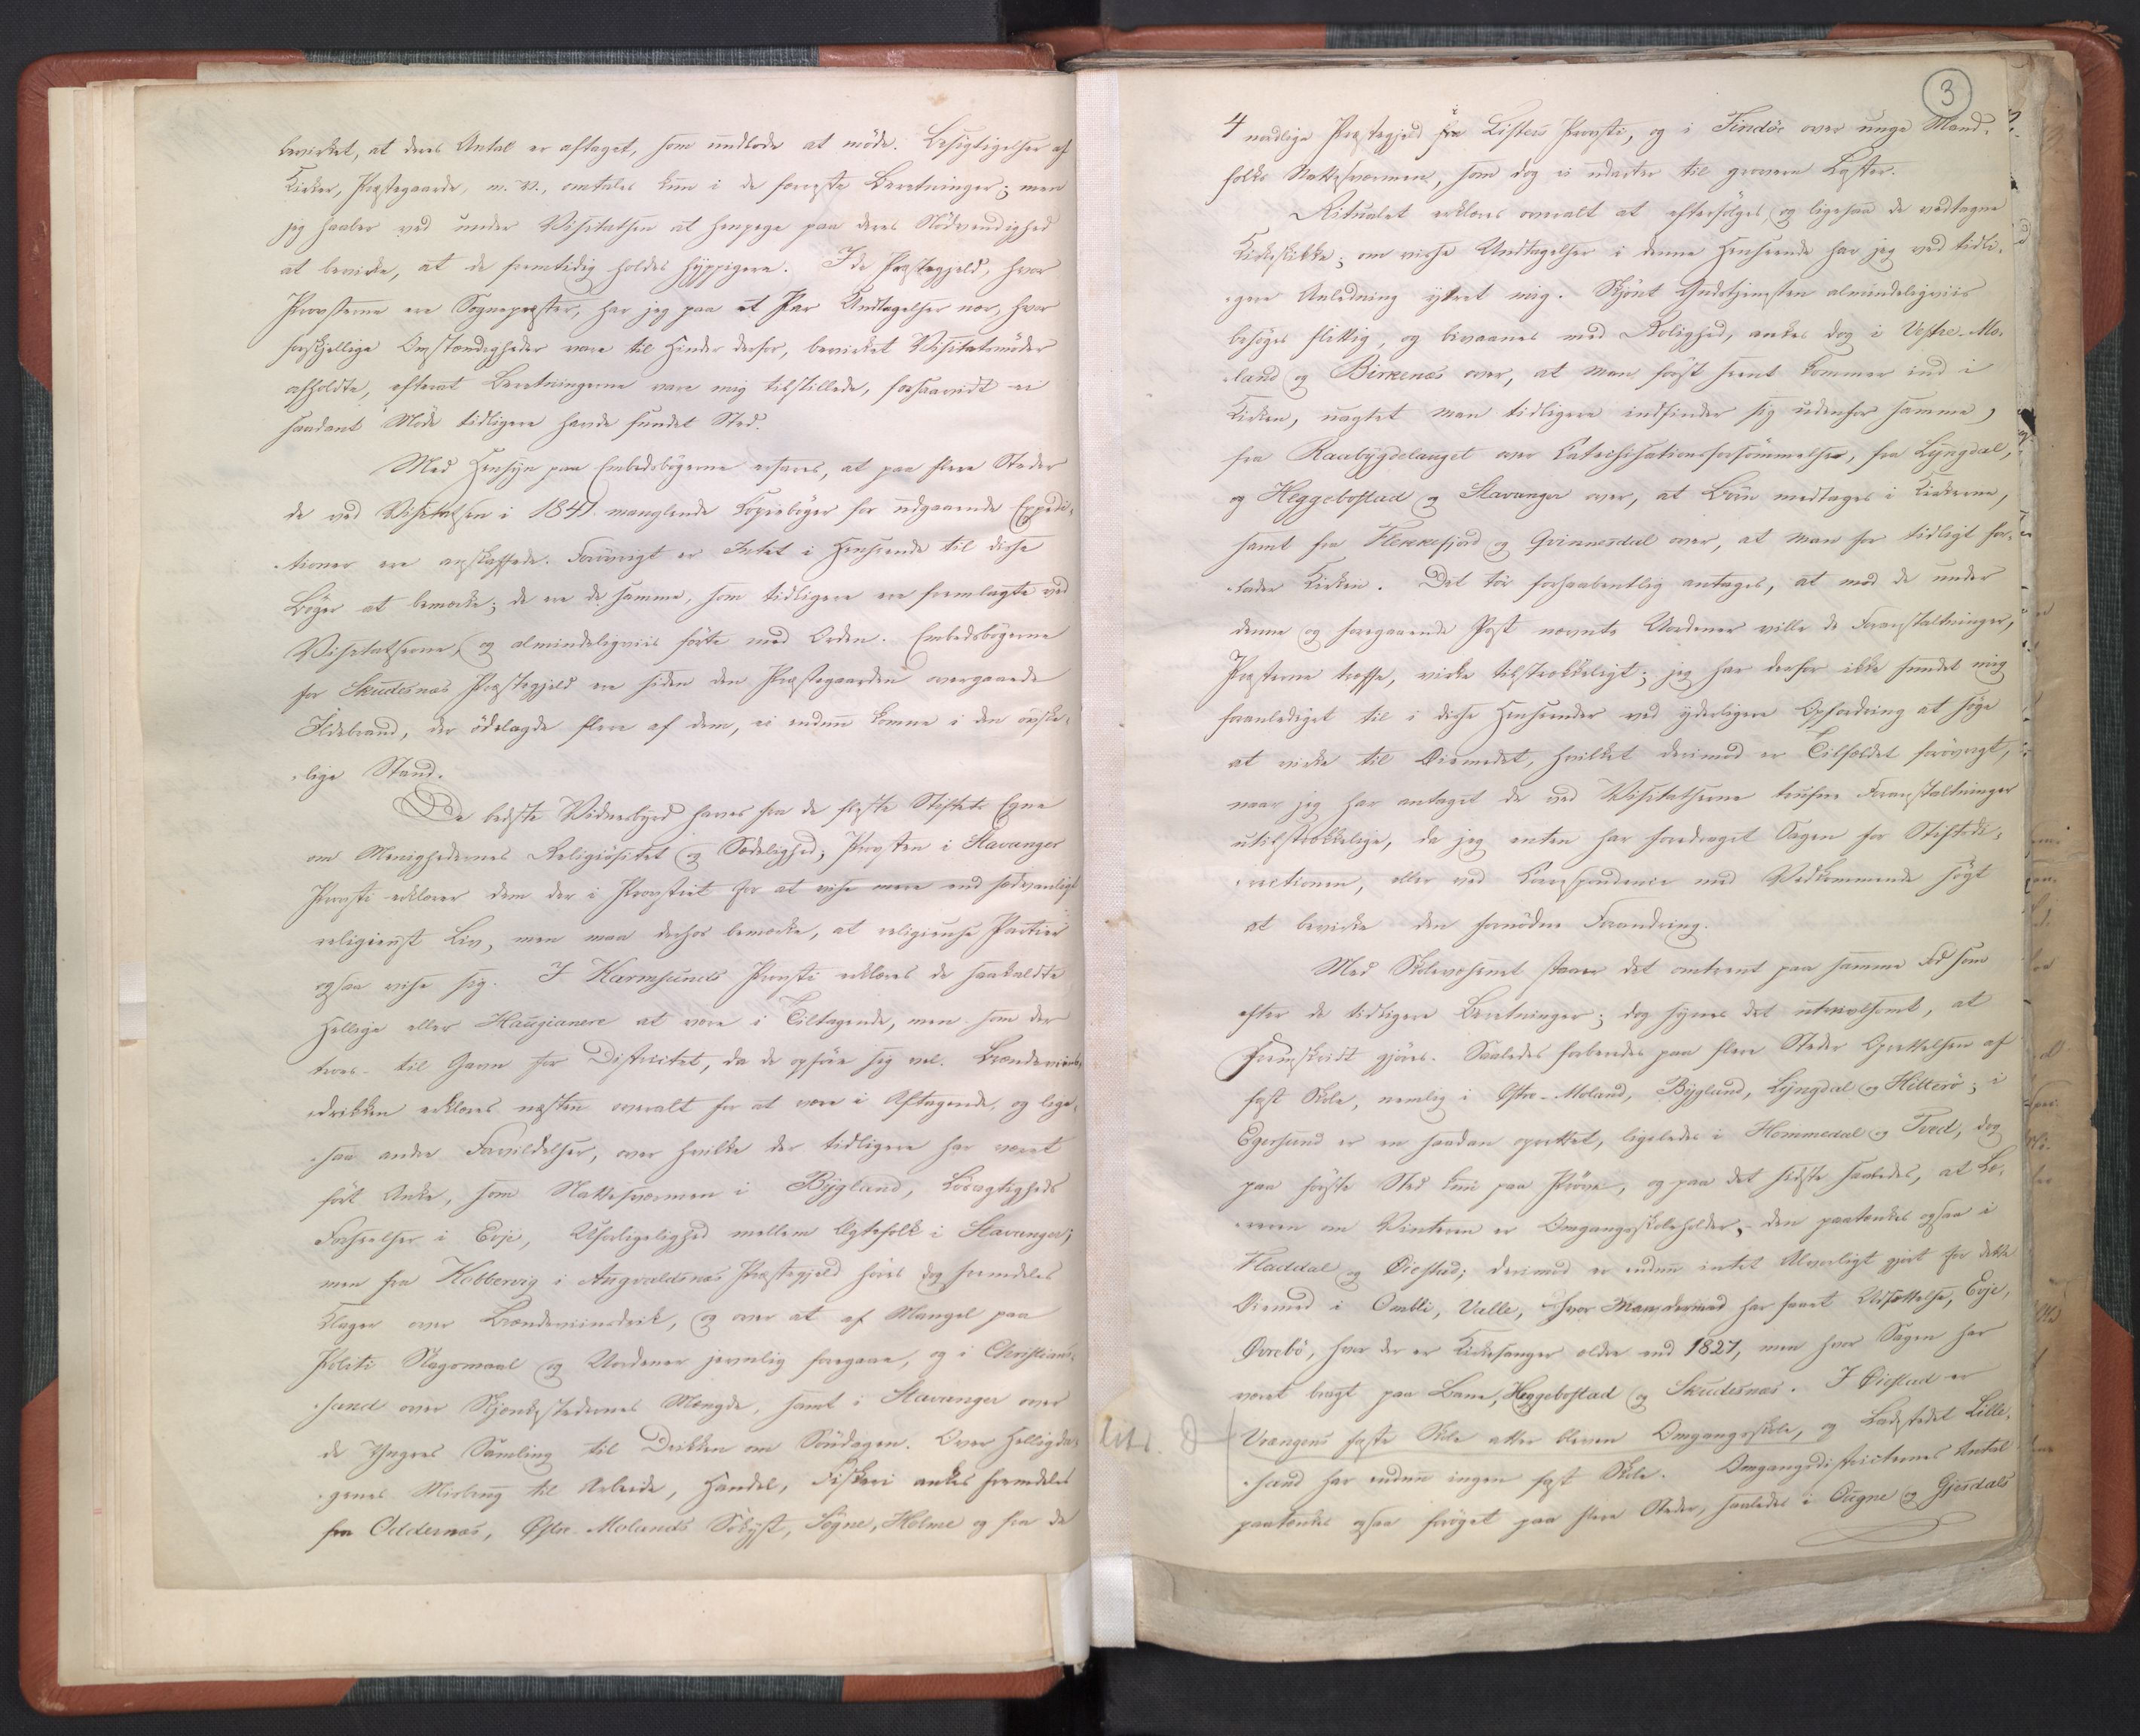 bevirket, at deres Antal er aftaget, som undlode at møde. Besigtigelser af
Kirker, Præstegaarde, m. v., omtales kun i de færreste Beretninger; men
jeg haaber ved under Visitatsen at henpege paa deres Nödvendighed
at bevirke, at de fremtidig holdes hyppigere. I de Præstegjeld, hvor
Provsterne ere Sognepræster, har jeg paa et Par Undtagelser nær, hvor
forskjellige Omstændigheder vare til Hinder derfor, bevirket Visitatsmöder
afholdte, efterat Beretningerne vare mig tilstillede, forsaavidt ei
saadant Möde tidligere havde fundet Sted.
Med Hensyn paa Embedsbögerne erfares, at paa flere Steder
de ved Visitatsen i 1841 manglende Copieböger for udgaaende Expedi-
tioner ere anskaffede. Forövrigt er Intet i Henseende til disse
Böger at bemærke; de ere de samme, som tidligere ere fremlagte ved
Visitatserne, og almindeligviis förte med Orden. Embedsbögerne
for Skudesnæs Præstegjeld ere siden den Præstegaarden overgaaede
Ildebrand, der ödelagde flere af dem, ei endnu komne i den önske-
lige Stand.
De bedste Vidnesbyrd haves fra de fleste Stiftets Egne
om Menighedernes Religiösitet og Sædelighed; Provsten i Stavanger
Provsti erklærer dem der i Provstiet for at vise mere end sædvanligt
religieust Liv, men maa derhos bemærke, at religieuse Partier
ogsaa vise sig. I Karmsunds Provsti erklæres de saakaldte
Hellige eller Haugianere at være i Tiltagende, men som der
troes til Gavn for Districtet, da de opföre sig vel. Brændeviins-
drikken erklæres næsten overalt for at være i Aftagende, og lige-
saa andre Forvildelser, over hvilke der tidligere har været
fört Anke, som Nattesværmen i Bygland, Lösagtigheds
Forseelser i Evje, Uforligelighed mellem Ægtefolk i Stavanger;
men fra Kobbervig i Augvaldsnæs Præstegjeld höres dog fremdeles
Klager over Brændeviinsdrik, og over at af Mangel paa
Politi Slagsmaal og Uordener jevnlig foregaae, og i Christian-
sand over Skjænkestedernes Mængde, samt i Stavanger over
de Yngres Samling til Drikken om Söndagen. Over Helligda-
genes Misbrug til Arbeide, Handel, Fiskeri ankes fremdeles
fra Oddernæs, Östre-Molands Sökyst, Sögne, Holme og fra de
3
4 nordlige Præstegjeld i Listers Provsti, og i Tindöe over unge Mand-
folks Nattesværmen, som dog ei udarter til grovere Lyster.
Ritualet erklæres overalt at efterfölges, og ligesaa de vedtagne
Kirkeskikke; om visse Undtagelser i denne Henseende har jeg ved tidli-
gere Anledning yttret mig. Skjönt Gudstjenesten almindeligviis
besöges flittig, og bivaanes med Rolighed, ankes dog i Vestre-Mo-
land og Birkenæs over, at Man först seent kommer ind i
Kirken, uagtet Man tidligere indfinder sig udenfor samme,
fra Raabygdelauget over Catechisationsforsömmelser, fra Lyngdal,
og Heggebostad og Stavanger over, at Börn medtages i Kirkerne,
samt fra Flekkefjord og Qvinnesdal over, at Man for tidligt for-
lader Kirken. Det tör forhaabentlig antages, at mod de under
denne og foregaaende Post nævnte Uordener ville de Foranstaltninger,
Præsterne træffe, virke tilstrækkeligt; jeg har derfor ikke fundet mig
foranlediget til i disse Henseender ved yderligere Opfordring at söge
at virke til Öiemedet, hvilket derimod er Tilfældet forövrigt,
naar jeg har antaget de ved Visitatserne trufne Foranstaltninger
utilstrækkelige, da jeg enten har foredraget Sagen for Stiftsdi-
rectionen, eller ved Correspondence med Vedkommende sögt
at bevirke den fornödne Forandring.
Med Skolevæsenet staaer det omtrent paa samme Fod som
efter de tidligere Beretninger; dog synes det utvivlsomt, at
Fremskridt gjöres. Saaledes forberedes paa flere Steder Oprettelsen af
fast Skole, nemlig i Östre-Moland, Bygland, Lyngdal og Hitterö; i
Egersund er en saadan oprettet, ligeledes i Hommedal og Tved, dog
paa förste Sted kun paa Pröve, og paa det sidste saaledes, at Læ-
reren om Vinteren er Omgangsskoleholder; den paatænkes ogsaa i
Fladdal og Öiestad; derimod er endnu intet Alvorligt gjort for dette
Öiemed i Ombli, Valle, hvor Man derimod har faaet Udsættelse, Evje,
Övrebö, hvor der er Kirkesanger ældre end 1827, men hvor Sagen har
været bragt paa Bane, Heggebostad og Skudesnæs. I Öiestad er
Litr. d
Vrangens faste Skole atter bleven Omgangsskole, og Ladestedet Lille-
sand har endnu ingen fast Skole. Omgangsdistricternes Antal
paatænkes ogsaa foröget paa flere Steder, saaledes i Ougne og Gjesdals